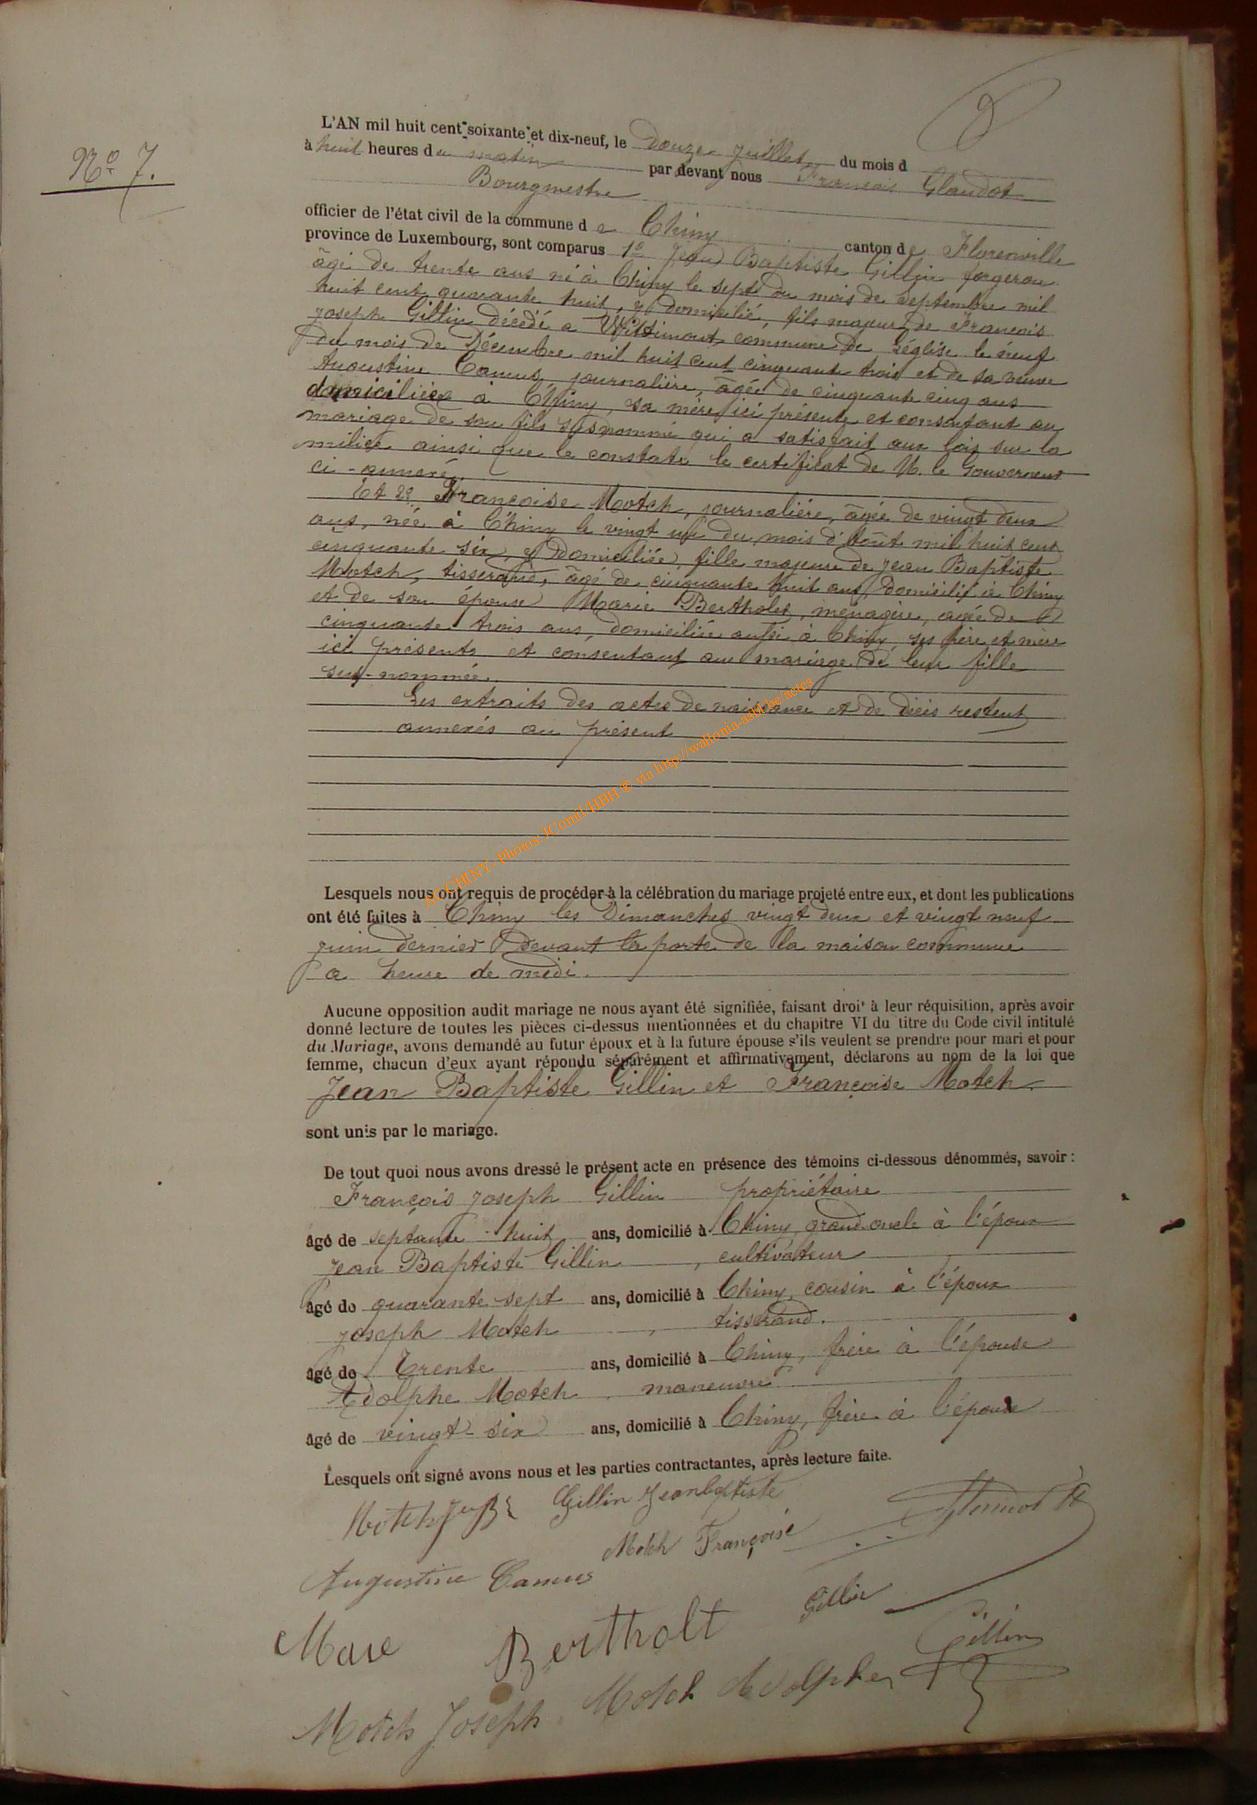 6
N° 7.
L'AN mil huit cent soixante et dix-neuf, le Douze Juillet du mois d
à huit heures du matin par devant nous François Glaudot
Bourgmestre
officier de l'état civil de la commune de Chiny canton de Florenville
province de Luxembourg, sont comparus 1° Jean Baptiste Gillin forgeron
âgé de trente ans né à Chiny le sept du mois de Septembre mil
huit cent quarante huit, y domicilié, fils majeur de François
Joseph Gillin décédé à Wittimont commune de Léglise le neuf
du mois de Décembre mil huit cent cinquante trois et de sa veuve
Augustine Camus, journalière, âgée de cinquante cinq ans
domiciliée à Chiny, sa mère ici présente et consentant au
mariage de son fils susnommé qui a satisfait aux lois sur la
milice ainsi que le constate le certificat de M. le Gouverneur
ci-annexé.
Et 2° Françoise Motch, journalière, âgée de vingt deux
ans, née à Chiny le vingt un du mois d'Août mil huit cent
cinquante six, y domiciliée, fille majeure de Jean Baptiste
Motch, tisserand, âgé de cinquante huit ans domicilié à Chiny
et de son épouse Marie Bertholet, ménagère, âgée de
cinquante trois ans, domiciliée aussi à Chiny ses père et mère
ici présents et consentant au mariage de leur fille
sus-nommée.
Les extraits des actes de naissance et de décès restent
annexés au présent
Lesquels nous ont requis de procéder à la célébration du mariage projeté entre eux, et dont les publications
ont été faites à Chiny les Dimanches vingt deux et vingt neuf
juin dernier devant la porte de la maison commune
a heure de midi.
Aucune opposition audit mariage ne nous ayant été signifiée, faisant droit à leur réquisition, après avoir
donné lecture de toutes les pièces ci-dessus mentionnées et du chapitre VI du titre du Code civil intitulé
du Mariage, avons demandé au futur époux et à la future épouse s'ils veulent se prendre pour mari et pour
femme, chacun d'eux ayant répondu séparément et affirmativement, déclarons au nom de la loi que
Jean Baptiste Gillin et Françoise Motch
sont unis par le mariage.
De tout quoi nous avons dressé le présent acte en présence des témoins ci-dessous dénommés, savoir :
François Joseph Gillin propriétaire
âgé de septante huit ans, domicilié à Chiny, grand oncle à l'époux
Jean Baptiste Gillin, cultivateur
âgé de quarante sept ans, domicilié à Chiny, cousin à l'époux
Joseph Motch, tisserand.
âgé de Trente ans, domicilié à Chiny, frère à l'épouse
Adolphe Motch, maneuvre
âgé de vingt six ans, domicilié à Chiny, frère à l'épouse
Lesquels ont signé avons nous et les parties contractantes, après lecture faite.
Gillin Jeanbaptiste
Motch Françoise
Augustine Camus
Gillin
Mare Bertholt
Gillin
Motch Joseph Motch Adolphe